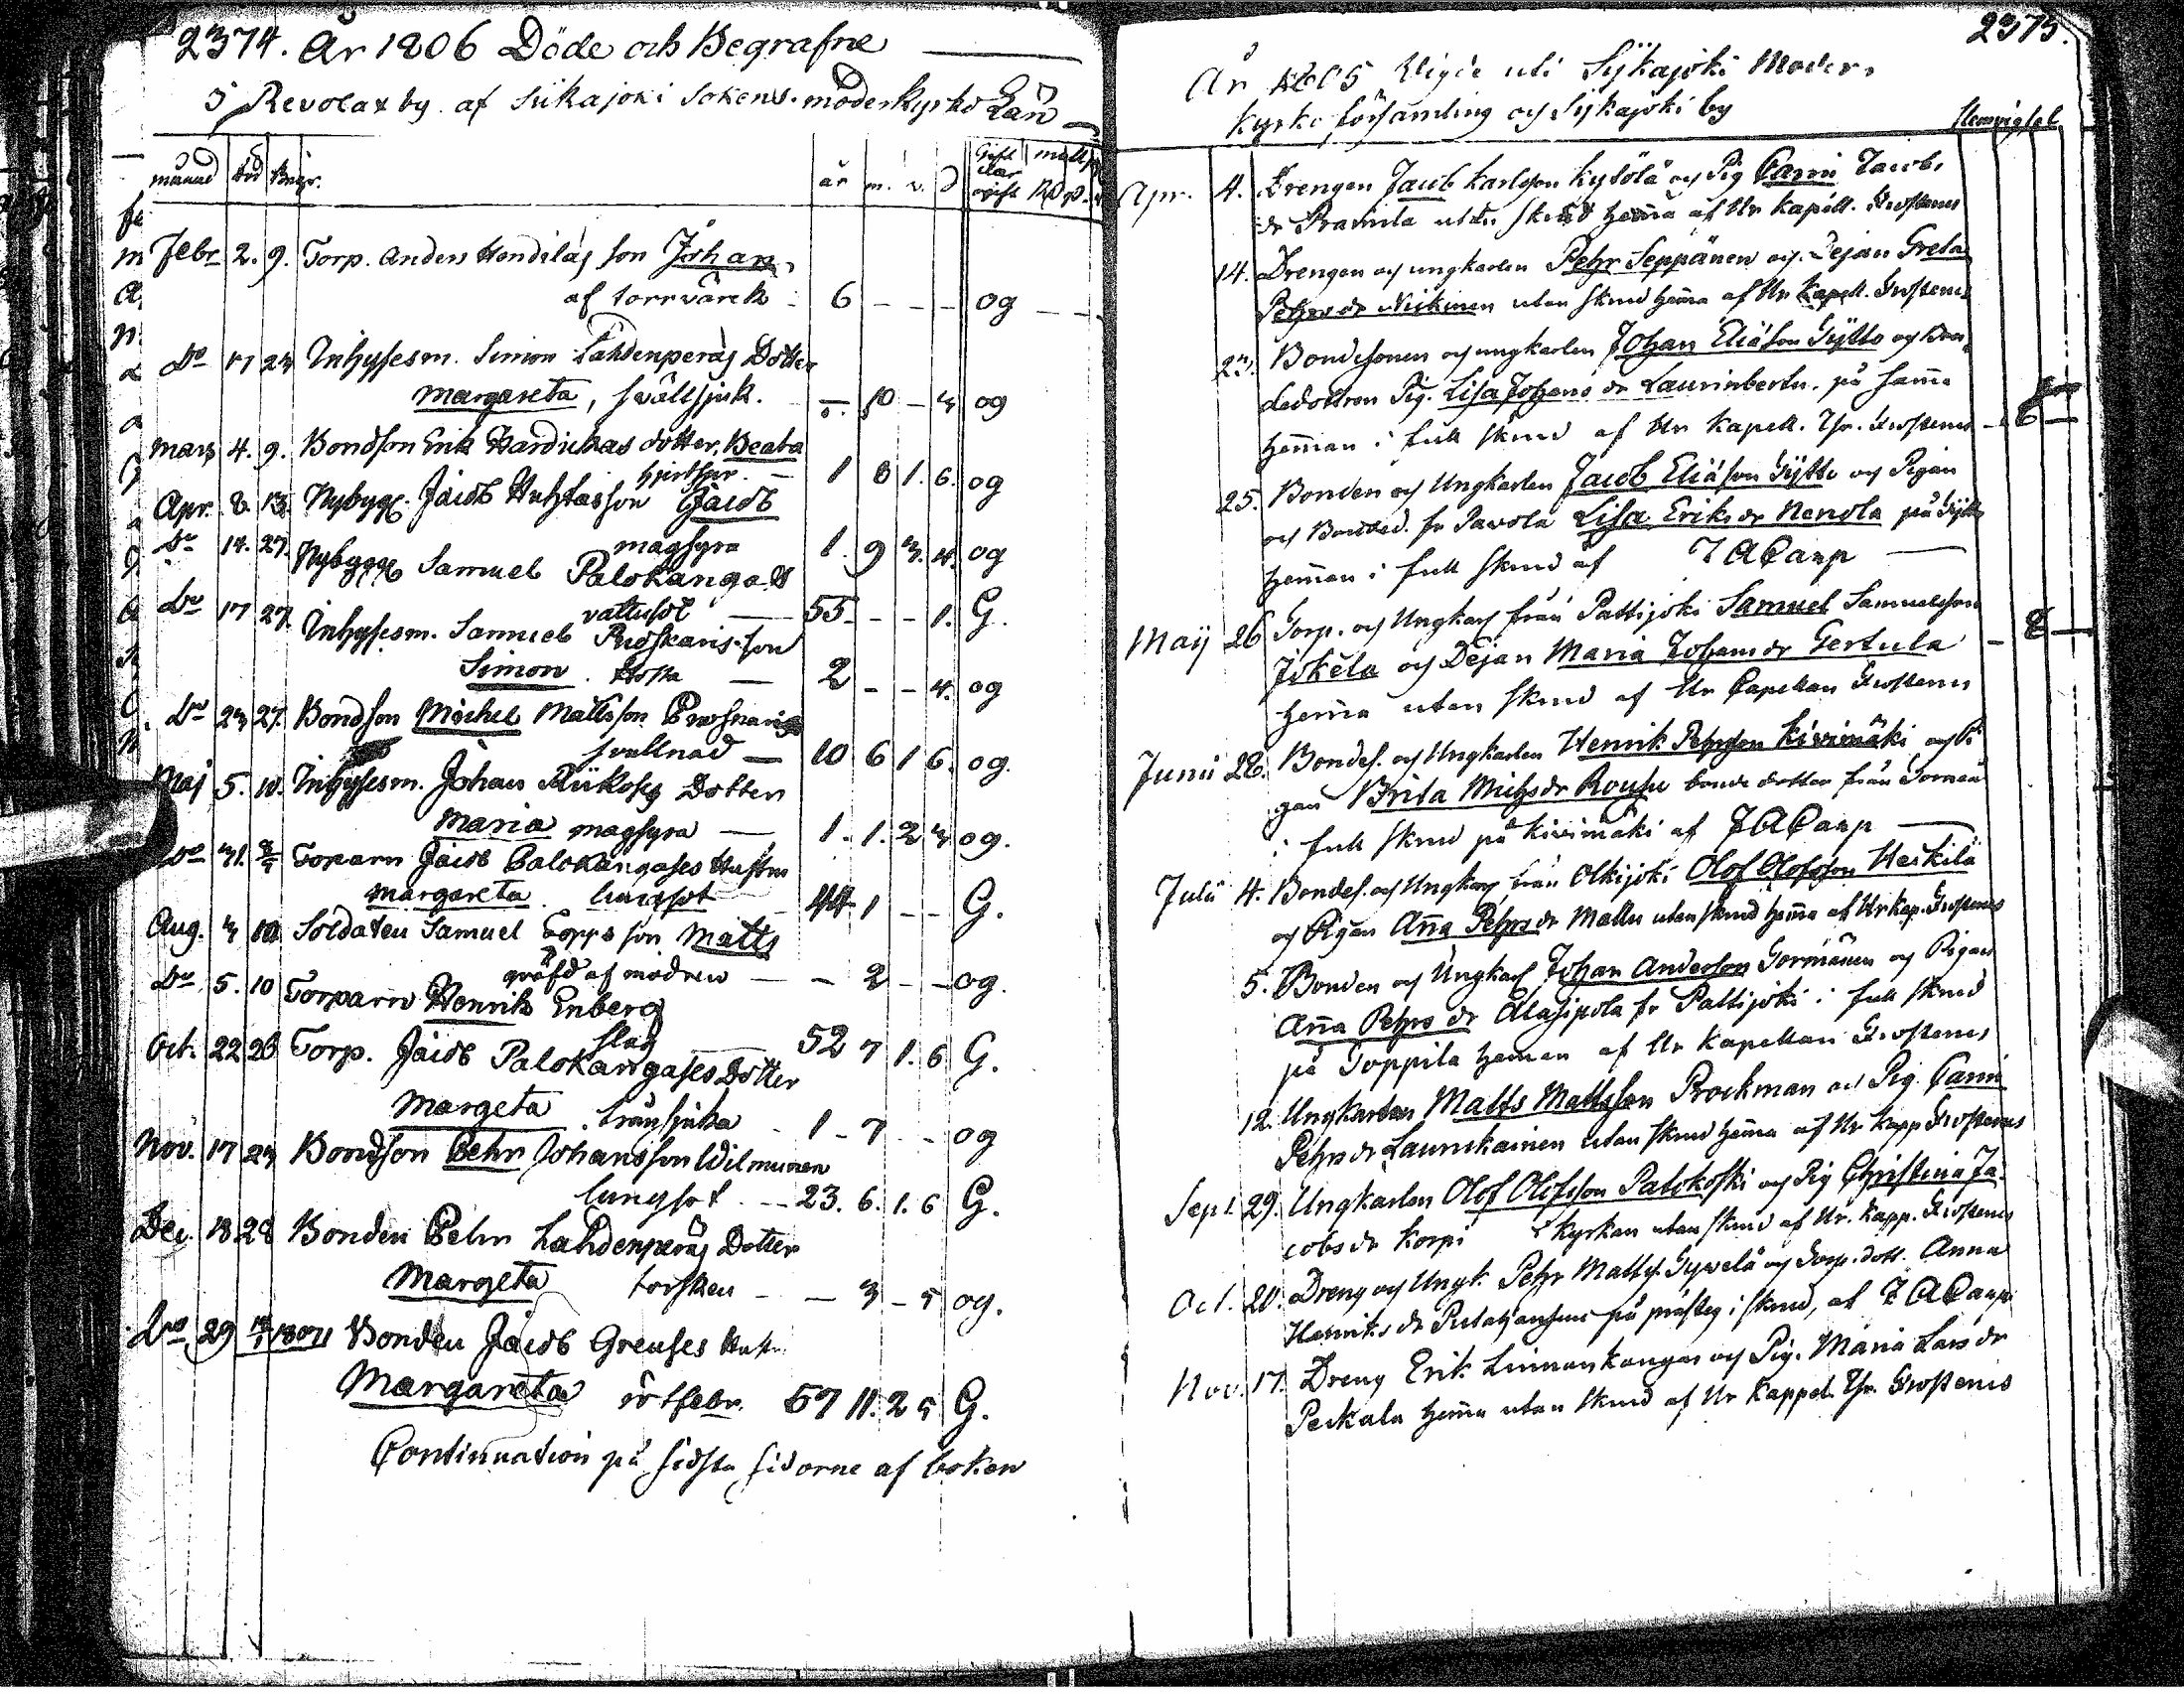 2374. År 1806 Döde och Begrafne
i Revolax by af Siikajoki Sokens moderkyrko Län
månad död Begr. år m. v. d Gift eller ogift
Febr 2. 9. Torp. Anders Hendilas son Johan
af torrvärck 6 - - - og
Do 17 23 Inhysesm. Simon Lahdenperas Dotter
Margareta, svältsjuk. - 10 - 3 og
Mars 4. 9. Bondson Erik Hardickas dotter, Beata
1 8 1. 6. og
Apr. 8. 13. Nybygg. Jacob Huhtas son Jacob
magsyra 1. 9 3. 4. og
Do 14. 27. Nybygg Samuel Palokangas
vattusot 55 - - 1. G.
Do 17 27. Inhysesm. Samuel Ruskaris son
Simon. Hosta 2 - - 4. og
Do 23 27. Bondson Michel Mattsson
svullnad 10 6 1 6. og.
Maj 5. 11. Inhysesm. Johan Dotter
Maria magsyra 1. 1. 2 3 og.
Do 31. Torparn Jacob Palokangases Hustru
Margareta. lungsot 44 1 - - G.
Aug. 3 10 Soldaten Samuel Topps son Matts
qväfd af modren - 2 - - og.
Do 5. 10 Torparn Henrik Enberg
slag 52 7 1. 6 G.
Oct. 22 26 Torp. Jacob Palokangases Dotter
Margeta. 1 - 7 - - og
Nov. 17 23 Bondson Pehr Johansson Wilmunen
lungsot 23. 6. 1. 6 G.
Dec. 18 28 Bonden Pehr Lahdenperäs Dotter
Margeta torsken - 3 - 5 og.
Do 29 1807 Bonden Jacob Greuses Hustr
Margareta rötfebr. 57 11. 2 5 G.
Continuation på sidsta sidorne af boken
2375.
År 1805 Vigde uti Sijkajoki Moder
kyrko församling och Sijkajoki by
Apr. 4. Drengen Jacob Karlsson Kysölä och Pig Carin Jacobs
dr utan skrud hemma af Hr Kapell. Frosterus
14. Drengen och ungkarlen Pehr Seppänen och Dejan Greta
Pehrs dr Niskinen utan skrud hemma af Hr Kapell. Frosterus
23. Bondesonen och ungkarlen Johan Eliäson Gijtto och Bon
dedottren Pig. Lisa Johans dr Laurinberta. på samma
hemman i full skrud af Hr Kapell. Thr. Frosterus - 6 -
25. Bonden och Ungkarlen Jacob Eliäson Gijtto och Pigan
och Bonded. fr Pavola Lisa Eriks dr Nenola på Gijtto
hemman i full skrud af J A Carp
Maij 26 Torp. och Ungkarl från Pattijoki Samuel Samuelsson
Jokela och Dejan Maria Johans dr Gertula - 8 -
hemma utan skrud af Hr Capellan Frosterus
Junii 28. Bondes. och Ungkarlen Henrik Pehrsson Kivimäki och Pi
gan Brita Michs dr Rouhu bonde dotter från
i full skrud på Kivimäki af J A Carp
Julii 4. Bondes. och Ungkarl från Olkijoki Olof Olofsson Heikilä
och Pigan Anna Pehrs dr Mallu utan skrud hemma af Hr Kap. Frosterus
5. Bonden och Ungkarl Johan Anderson Tormänen och Pigan
Anna Pehrs dr Alasipola fr Pattijoki i full skrud
på Toppila heman af Hr Kapellan Frosterus
12. Ungkarlen Matts Mattsson Brockman och Pig. Carin
Pehrs dr Laurikainen utan skrud hemma af Hr Kapp Frosterus
Sept. 29. Ungkarlen Olof Olofsson Palokoski och Pig Christina Ja
cobs dr Korpi i kyrkan utan skrud af Hr. Kapp. Frosterus
Oct. 20. Dreng och Ungk. Pehr Matts. Sypelä och Torp. dott. Anna
Henriks dr på prästeg i skrud, af J A Carp
Nov. 17. Dreng Erik Linnankangas och Pig. Maria Lars dr
Peckala hemma utan skrud af Hr Kappel. Thr. Frosterus